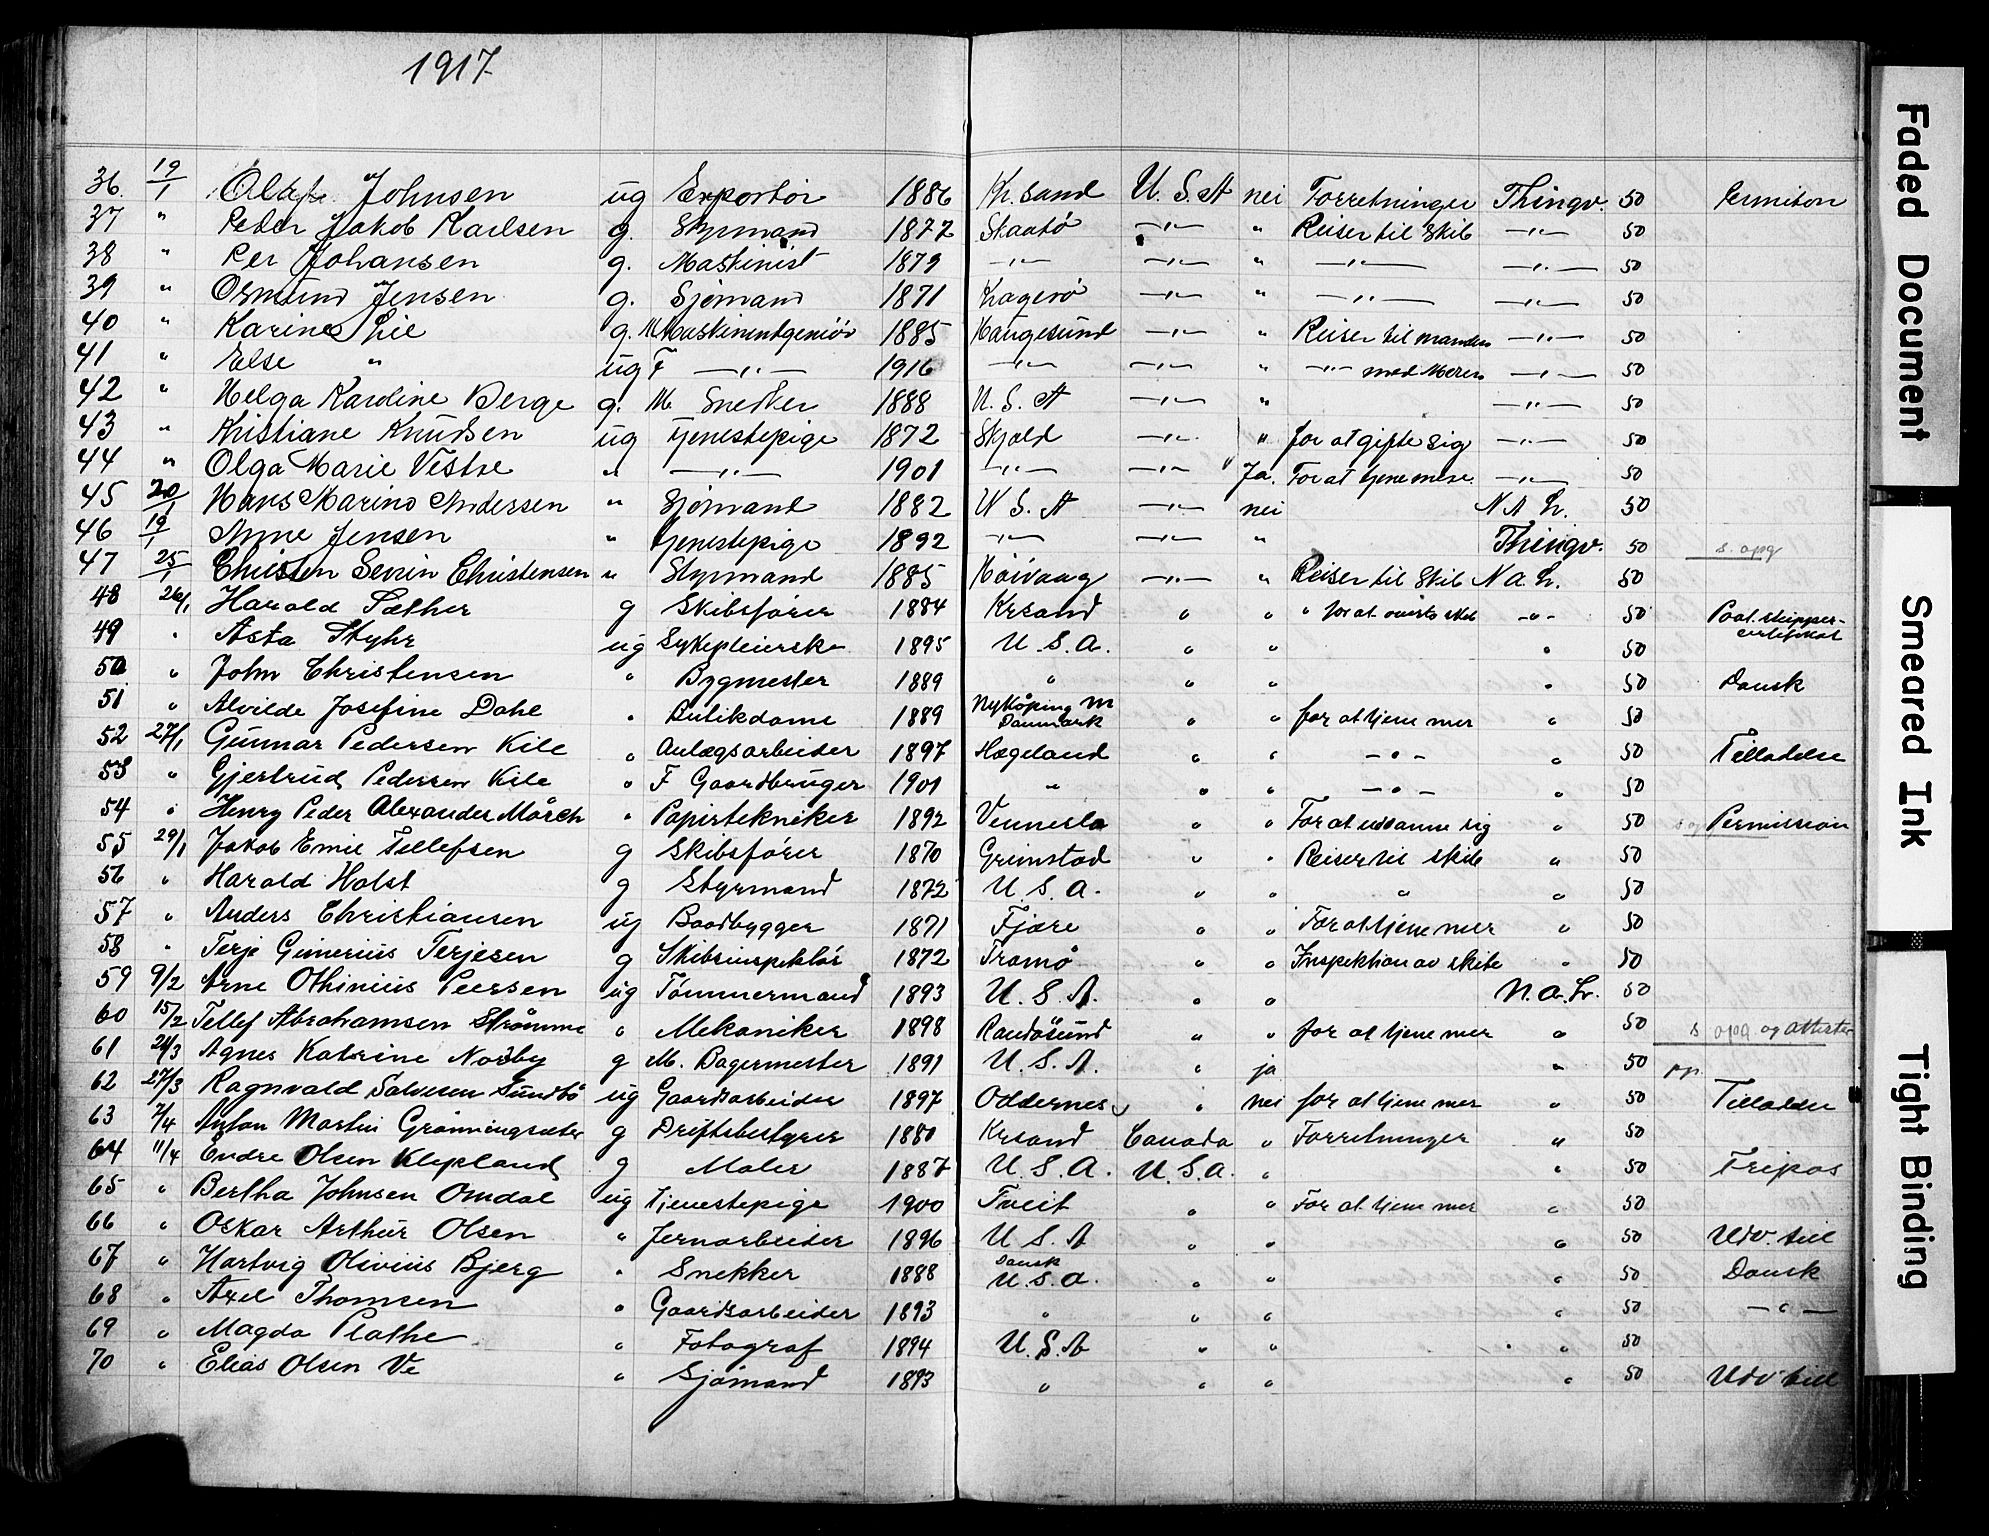 1917
36. 19/1 Olaf Johnsen ug Exportør 1886 Kr.sand U.S.A nei Forretninger Thingv. 50 Permiton
37 " Peder Jakob Karlsen g. Styrmand 1877 Skaatö —"— " Reiser til Skib —"— 50
38 " Per Johansen g. Maskinist 1879 —"— —"— " —"— —"— 50
39 " Osmund Jensen g. Sjømand 1871 Kragerö —"— " —"— —"— 50
40 " Karine Lie g. M. Maskinentgeniör 1885 Haugesund —"— " Reiser til manden —"— 50
41 " Else " ug F —"— 1916 —"— —"— " —"— med Moren —"— 50
42 " Helga Karoline Berge g. M. Snedker 1888 U.S.A —"— " —"— 50
43 " Kristiane Knudsen ug tjenestepige 1872 Skjold —"— " for at gifte sig —"— 50
44 " Olga Marie Vestre " —"— 1901 —"— —"— Ja. For at tjene mere —"— 50
45 20/1 Hans Marino Andersen " Sjømand 1882 U.S.A —"— nei N A L. 50
46 19/1 Anne Jensen " tjenestepige 1892 —"— —"— " Thingv. 50 s. opg
47 25/1 Christen Severin Christensen " Styrmand 1885 Höivaag —"— " Reiser til Skib N.a.L. 50
48 26/1 Harald Sæther g Skibsfører 1884 Krsand " " " for at overta skib -"- 50 Pat. skipper-
certifikat
49 " Asta Styhr ug Sykepleierske 1895 U.S.A. " " " 50
50 " John Christensen " Bygmester 1889 " " " " 50 Dansk
51 " Alvilde Josefine Dahl " Butikdame 1889 Nykøping M
Danmark " " for at tjene mer " 50
52 27/1 Gunnar Pedersen Kile " Anlægsarbeider 1897 Hægeland " " -"- " 50 Tilladelse
53 " Gjertrud Pedersen Kile " F Gaardbruger 1901 " " " -"- " 50
54 " Henry Peder Alexander Mörch " Papirtekniker 1892 Vennesla " " For at utdanne sig " 50 Permission
55 29/1 Jakob Emil Tellefsen g Skibsfører 1870 Grimstad " " Reiser til skib " 50
56 " Harald Holst g Styrmand 1872 U.S.A. " " " " 50
57 " Anders Christiansen ug Baadbygger 1871 Fjære " " For at tjene mer " 50
58 " Terje Gunerius Terjesen g Skibsinspektör 1872 Tromø " " Inspektion av skibe " 50
59 9/2 Arne Othinius Peersen ug Tömmermand 1893 U.S.A. " " N.a.L. 50
60 15/2 Tellef Abrahamsen Strømme " Mekaniker 1898 Randösund " " for at tjene mer " 50 s opg og attester
61 24/3 Agnes Katrine Norby g M. Bagermester 1891 U.S.A. " ja " 50 op.
62 27/3 Ragnvald Salvesen Sundbö ug Gaardsarbeider 1897 Oddernes " nei for at tjene mer " 50 Tilladelse
63 7/4 Anton Martin Grønningsæter g Driftsbestyrer 1880 Krsand Canada " Forretninger " 50
64 11/4 Endre Olsen Klepland g Maler 1887 U.S.A. U.S.a. " " 50 Fripas
65 " Bertha Johnsen Omdal ug tjenestepige 1900 Tveit " " For at tjene mer " 50
66 " Oskar Arthur Olsen " Jernarbeider 1896 U.S.A " " " 50 Udv. till
67 " Hartvig Olivius Bjerg " Snekker 1888 Dansk
U.S.a. " " " 50 Dansk
68 " Axel Thomsen " Gaardsarbeider 1893 " " " " 50 —"—
69 " Magda Plathe " Fotograf 1894 U.S.A " " " 50
70 " Elias Olsen Ve " Sjømand 1893 " " " " 50 Udv till
Faded Document
Smeared Ink
Tight Binding